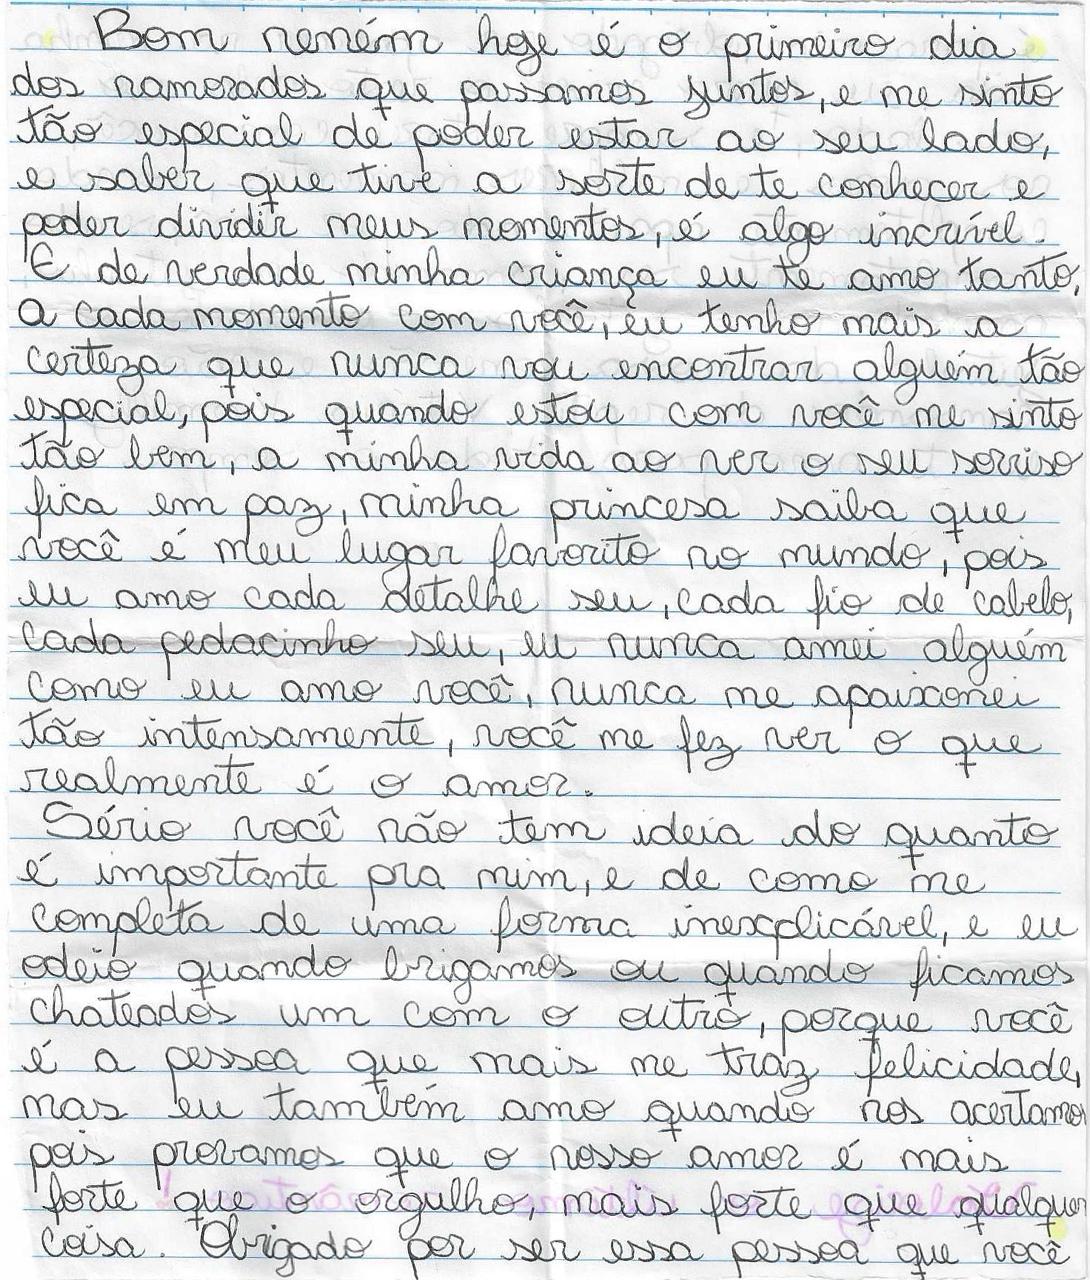 Bom neném hoje é o primeiro dia
dos namorados que passamos juntos, e me sinto
tão especial de poder estar ao seu lado,
e saber que tive a sorte de te conhecer e
poder dividir meus momentos, é algo incrível.
E de verdade minha criança eu te amo tanto,
a cada momento com você, eu tenho mais a
certeza que nunca vou encontrar alguém tão
especial, pois quando estou com você me sinto
tão bem, a minha vida ao ver o seu sorriso
fica em paz, minha princesa saiba que
você é meu lugar favorito no mundo, pois
eu amo cada detalhe seu, cada fio de cabelo,
cada pedacinho seu, eu nunca amei alguém
como eu amo você, nunca me apaixonei
tão intensamente, você me fez ver o que
realmente é o amor.
Sério você não tem ideia do quanto
é importante pra mim, e de como me
completa de uma forma inexplicável, e eu
odeio quando brigamos ou quando ficamos
chateados um com o outro, porque você
é a pessoa que mais me traz felicidade,
mas eu também amo quando nos acertamos
pois provamos que o nosso amor é mais
forte que o orgulho, mais forte que qualquer
coisa. Obrigado por ser essa pessoa que você